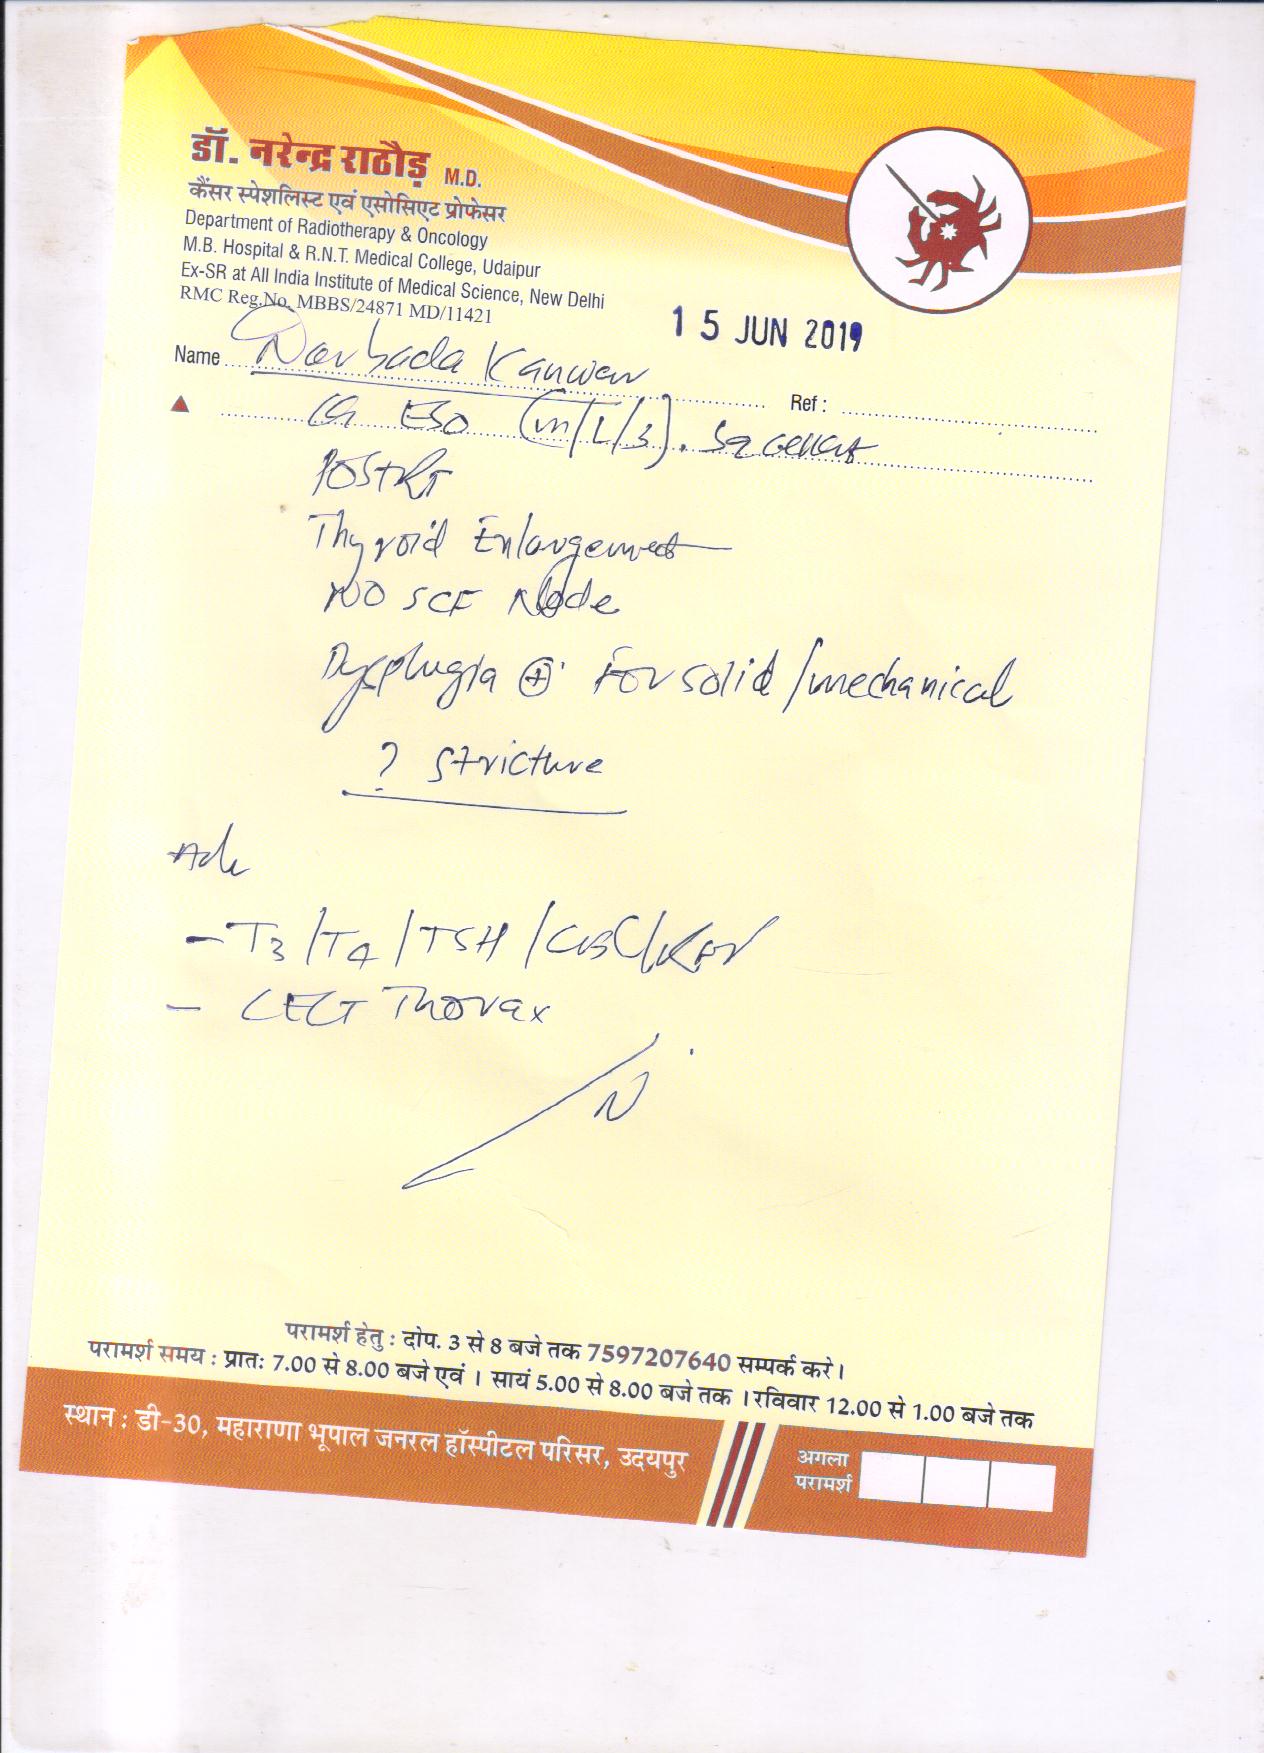 डॉ. नरेन्द्र राठौड़ M.D.
कैंसर स्पेशलिस्ट एवं एसोसिएट प्रोफेसर
Department of Radiotherapy & Oncology
M.B. Hospital & R.N.T. Medical College, Udaipur
Ex-SR at All India Institute of Medical Science, New Delhi
RMC Reg.No. MBBS/24871 MD/11421
15 JUN 2019
Name Narbada Kanwar
Ref :
Ca ESO (m/L/3).
POSTRT
Thyroid Enlargement
NO SCF Node
Dysphagia + For solid/mechanical
? Stricture
Adv
- T3/T4/TSH/CBC/RFT
- CECT Thorax
N
परामर्श हेतु : दोप. 3 से 8 बजे तक 7597207640 सम्पर्क करे।
परामर्श समय : प्रातः 7.00 से 8.00 बजे एवं । सायं 5.00 से 8.00 बजे तक । रविवार 12.00 से 1.00 बजे तक
स्थान : डी-30, महाराणा भूपाल जनरल हॉस्पीटल परिसर, उदयपुर
अगला
परामर्श